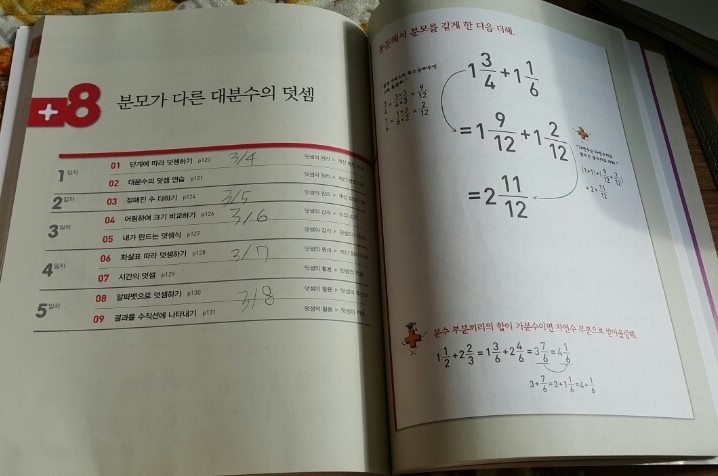 +8 분모가 다른 대분수의 덧셈
1일차 01 단계에 따라 덧셈하기 p120 3/4 덧셈의 원리
02 대분수의 덧셈 연습 p121 덧셈의 원리
2일차 03 정해진 수 더하기 p124 3/5 덧셈의 원리
3일차 04 어림하여 크기 비교하기 p126 3/6 덧셈의 원리
05 내가 만드는 덧셈식 p127 덧셈의 감각
4일차 06 화살표 따라 덧셈하기 p128 3/7 덧셈의 원리
07 시간의 덧셈 p129 덧셈의 활용
5일차 08 알파벳으로 덧셈하기 p130 3/8 덧셈의 활용
09 결과를 수직선에 나타내기 p131 덧셈의 활용
통분해서 분모를 같게 한 다음 더해.
1 3/4 + 1 1/6
= 1 9/12 + 1 2/12
= 2 11/12
분수 부분끼리의 합이 가분수이면 자연수 부분으로 받아올림해.
1 1/2 + 2 2/3 = 1 3/6 + 2 4/6 = 3 7/6 = 4 1/6
3 + 7/6 = 3 + 1 1/6 = 4 1/6